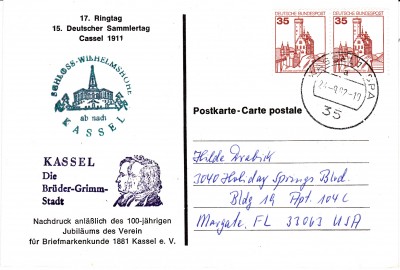 17. Ringtag
15. Deutscher Sammlertag
Cassel 1911
SCHLOSS-WILHELMSHÖHE
ab nach
KASSEL
KASSEL
Die
Brüder-Grimm-
Stadt
Nachdruck anläßlich des 100-jährigen
Jubiläums des Verein
für Briefmarkenkunde 1881 Kassel e. V.
DEUTSCHE BUNDESPOST
35
DEUTSCHE BUNDESPOST
35
35
Postkarte-Carte postale
Hilde Drabik
3040 Holiday Springs Blvd.
Bldg 19 Apt. 104C
Margate, FL 33063 USA